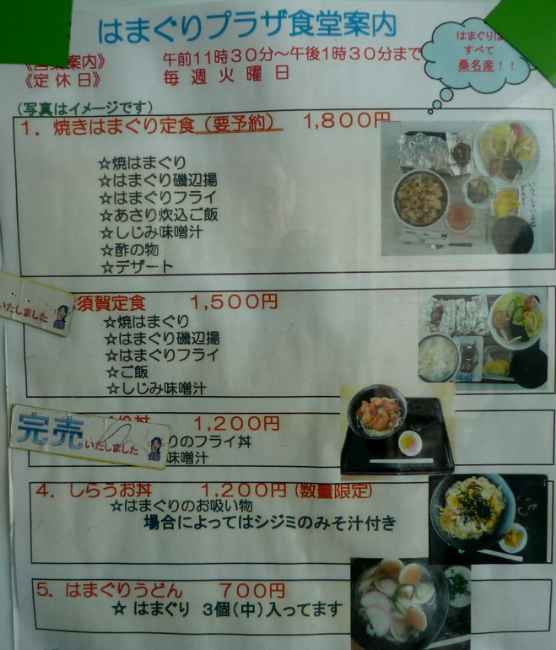 はまぐりプラザ食堂案内
案内》 午前11時30分～午後1時30分まで
《定休日》 毎週火曜日
はまぐりは
すべて
桑名産！！
(写真はイメージです)
1．焼きはまぐり定食（要予約） 1,800円
☆焼はまぐり
☆はまぐり磯辺揚
☆はまぐりフライ
☆あさり炊込ご飯
☆しじみ味噌汁
☆酢の物
☆デザート
いたしました
須賀定食 1,500円
☆焼はまぐり
☆はまぐり磯辺揚
☆はまぐりフライ
☆ご飯
☆しじみ味噌汁
丼 1,200円
完売いたしました
りのフライ丼
味噌汁
4．しらうお丼 1,200円(数量限定)
☆はまぐりのお吸い物
場合によってはシジミのみそ汁付き
5．はまぐりうどん 700円
☆ はまぐり 3個(中)入ってます